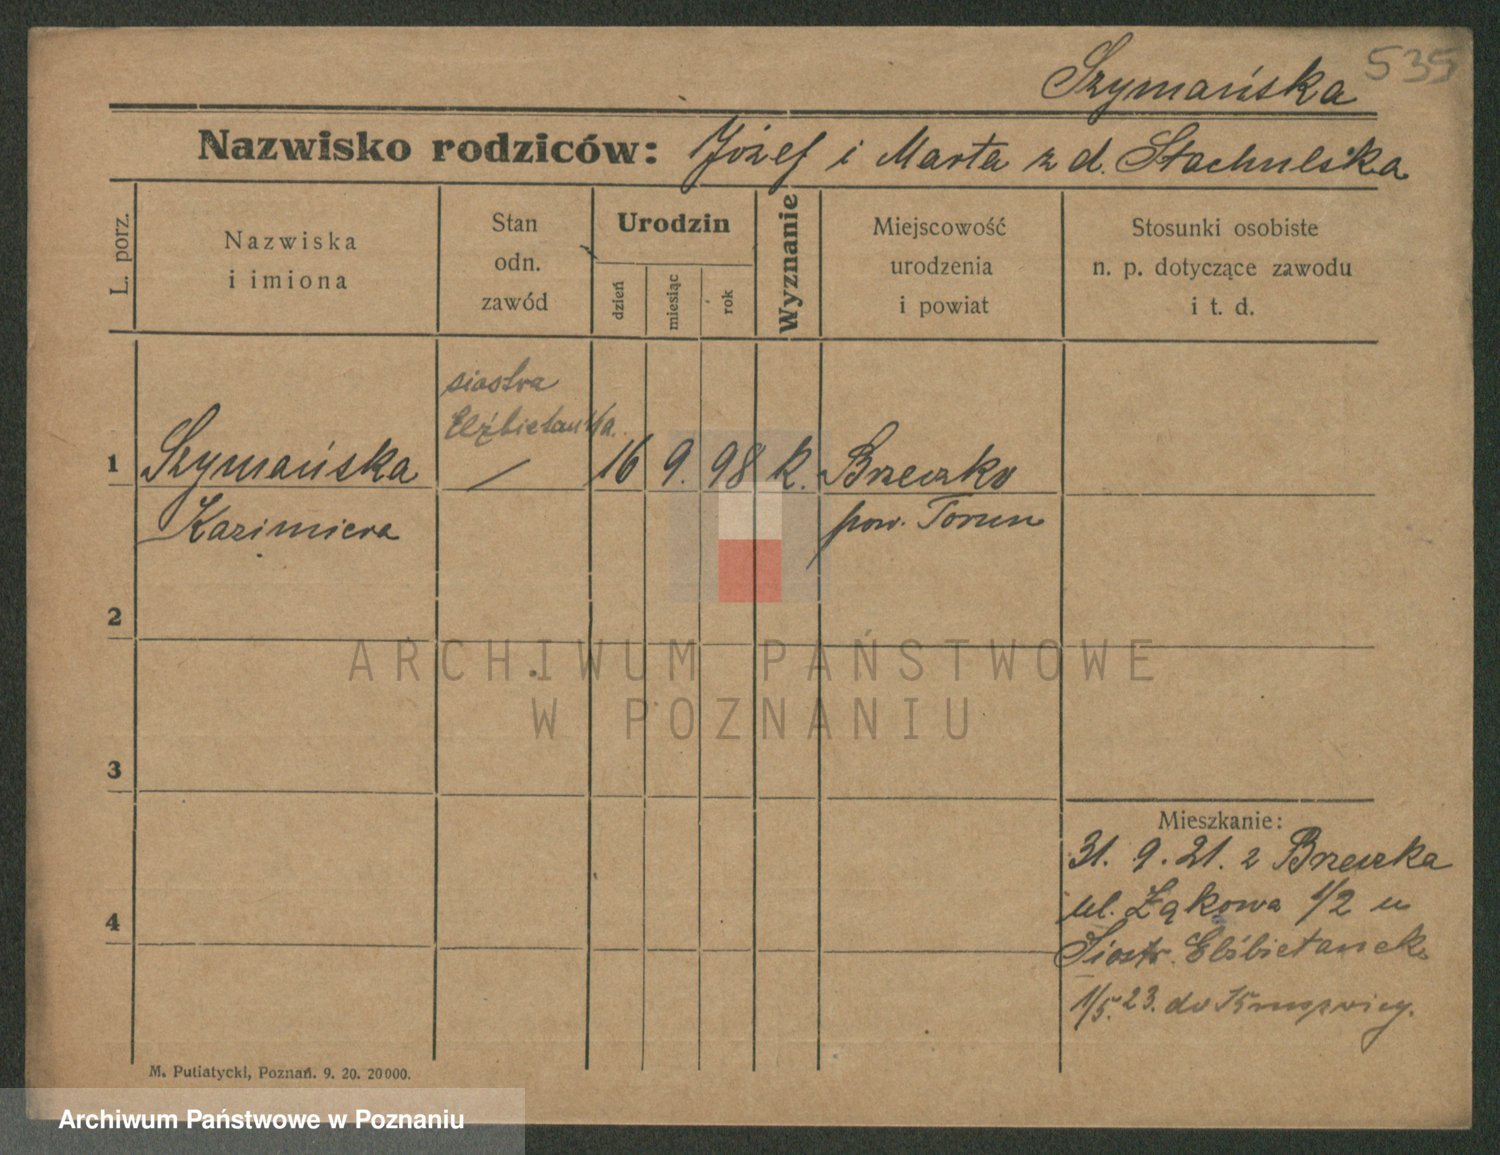 535
Szymańska
Nazwisko rodziców: Józef i Marta z d. Stachulska
L. porz.
Nazwiska
i imiona
Stan
odn.
zawód
Urodzin
dzień
miesiąc
rok
Wyznanie
Miejscowość
urodzenia
i powiat
Stosunki osobiste
n. p. dotyczące zawodu
i t. d.
siostra
Elżbietanka.
1 Szymańska — 16 9. 98 k. Brzeczko
Kazimiera pow. Torun
2
3
4
Mieszkanie:
31. 9. 21. z Brzeczka
ul. Łąkowa 1/2 u
Siostr. Elżbietanek
1/5. 23. do Kruszwicy.
M. Putiatycki, Poznań. 9. 20. 20000.
ARCHIWUM PAŃSTWOWE
W POZNANIU
Archiwum Państwowe w Poznaniu